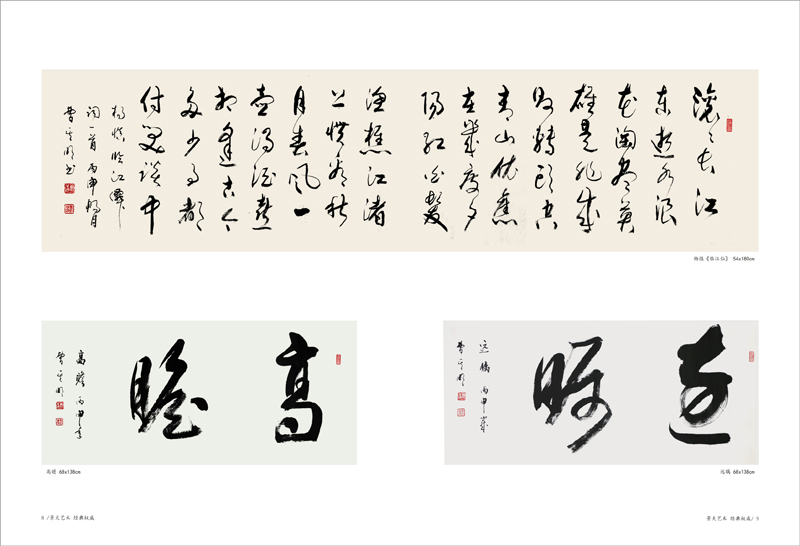 滚滚长江
东逝水浪
花淘尽英
雄是非成
败转头空
青山依旧
在幾度夕
阳红白髮
渔樵江渚
上惯看秋
月春风一
壶浊酒喜
相逢古今
多少事都
付笑谈中
杨慎临江仙
词一首 丙申腊月
曹 明书
杨慎《临江仙》 54x180cm
高
瞻
高瞻 丙申年
曹 明
高瞻 68x138cm
远
瞩
远瞩 丙申岁
曹 明
远瞩 68x138cm
8 / 艺术 经典权威
艺术 经典权威/ 9